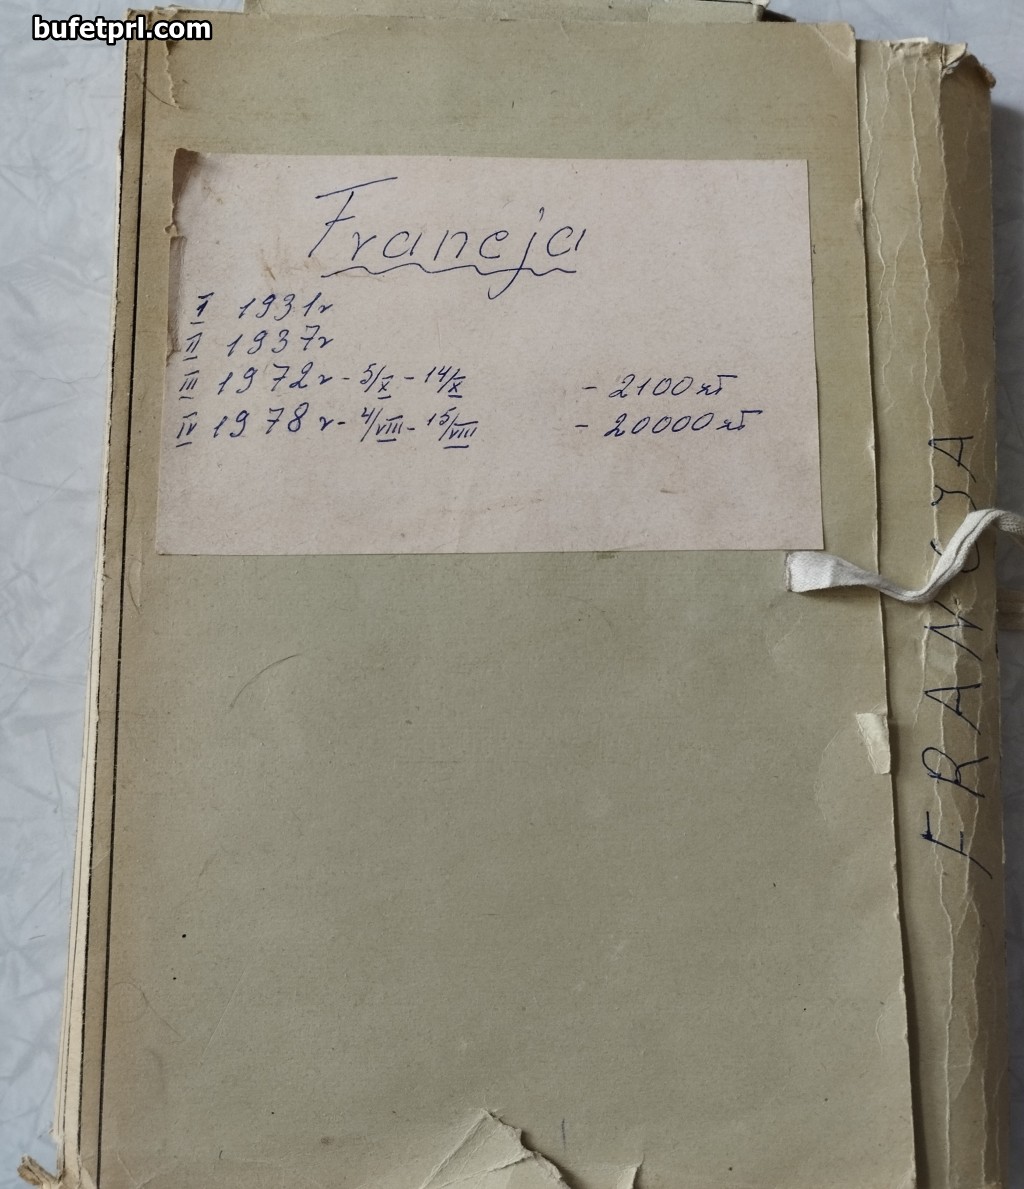 bufetprl.com
Francja
I 1931r
II 1937r
III 1972r - 5/X - 14/X - 2100 zł
IV 1978r - 4/VIII - 15/VIII - 20000 zł
FRANCJA